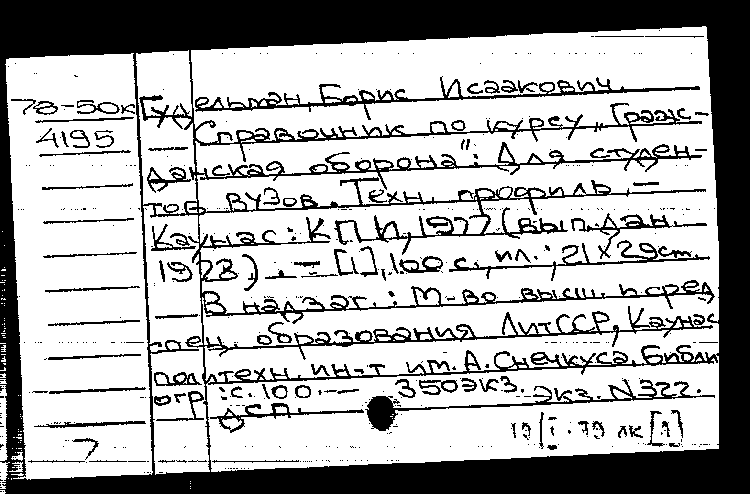 78-50к
4195
Гудельман, Борис Исаакович.
Справочник по курсу „Граж-
данская оборона": Для студен-
тов вузов. Техн. профиль. —
Каунас: КПИ, 1977 (вып. дан.
1978). — [1], 100 с., ил.; 21х29 см.
В надзаг.: М-во высш. и сред
спец. образования ЛитССР, Каунас
политехн. ин-т им. А. Снечкуса. Библи
огр.: с. 100. — 350 экз. Экз. N322.
ДСП.
7
19/I-79 лк [1]